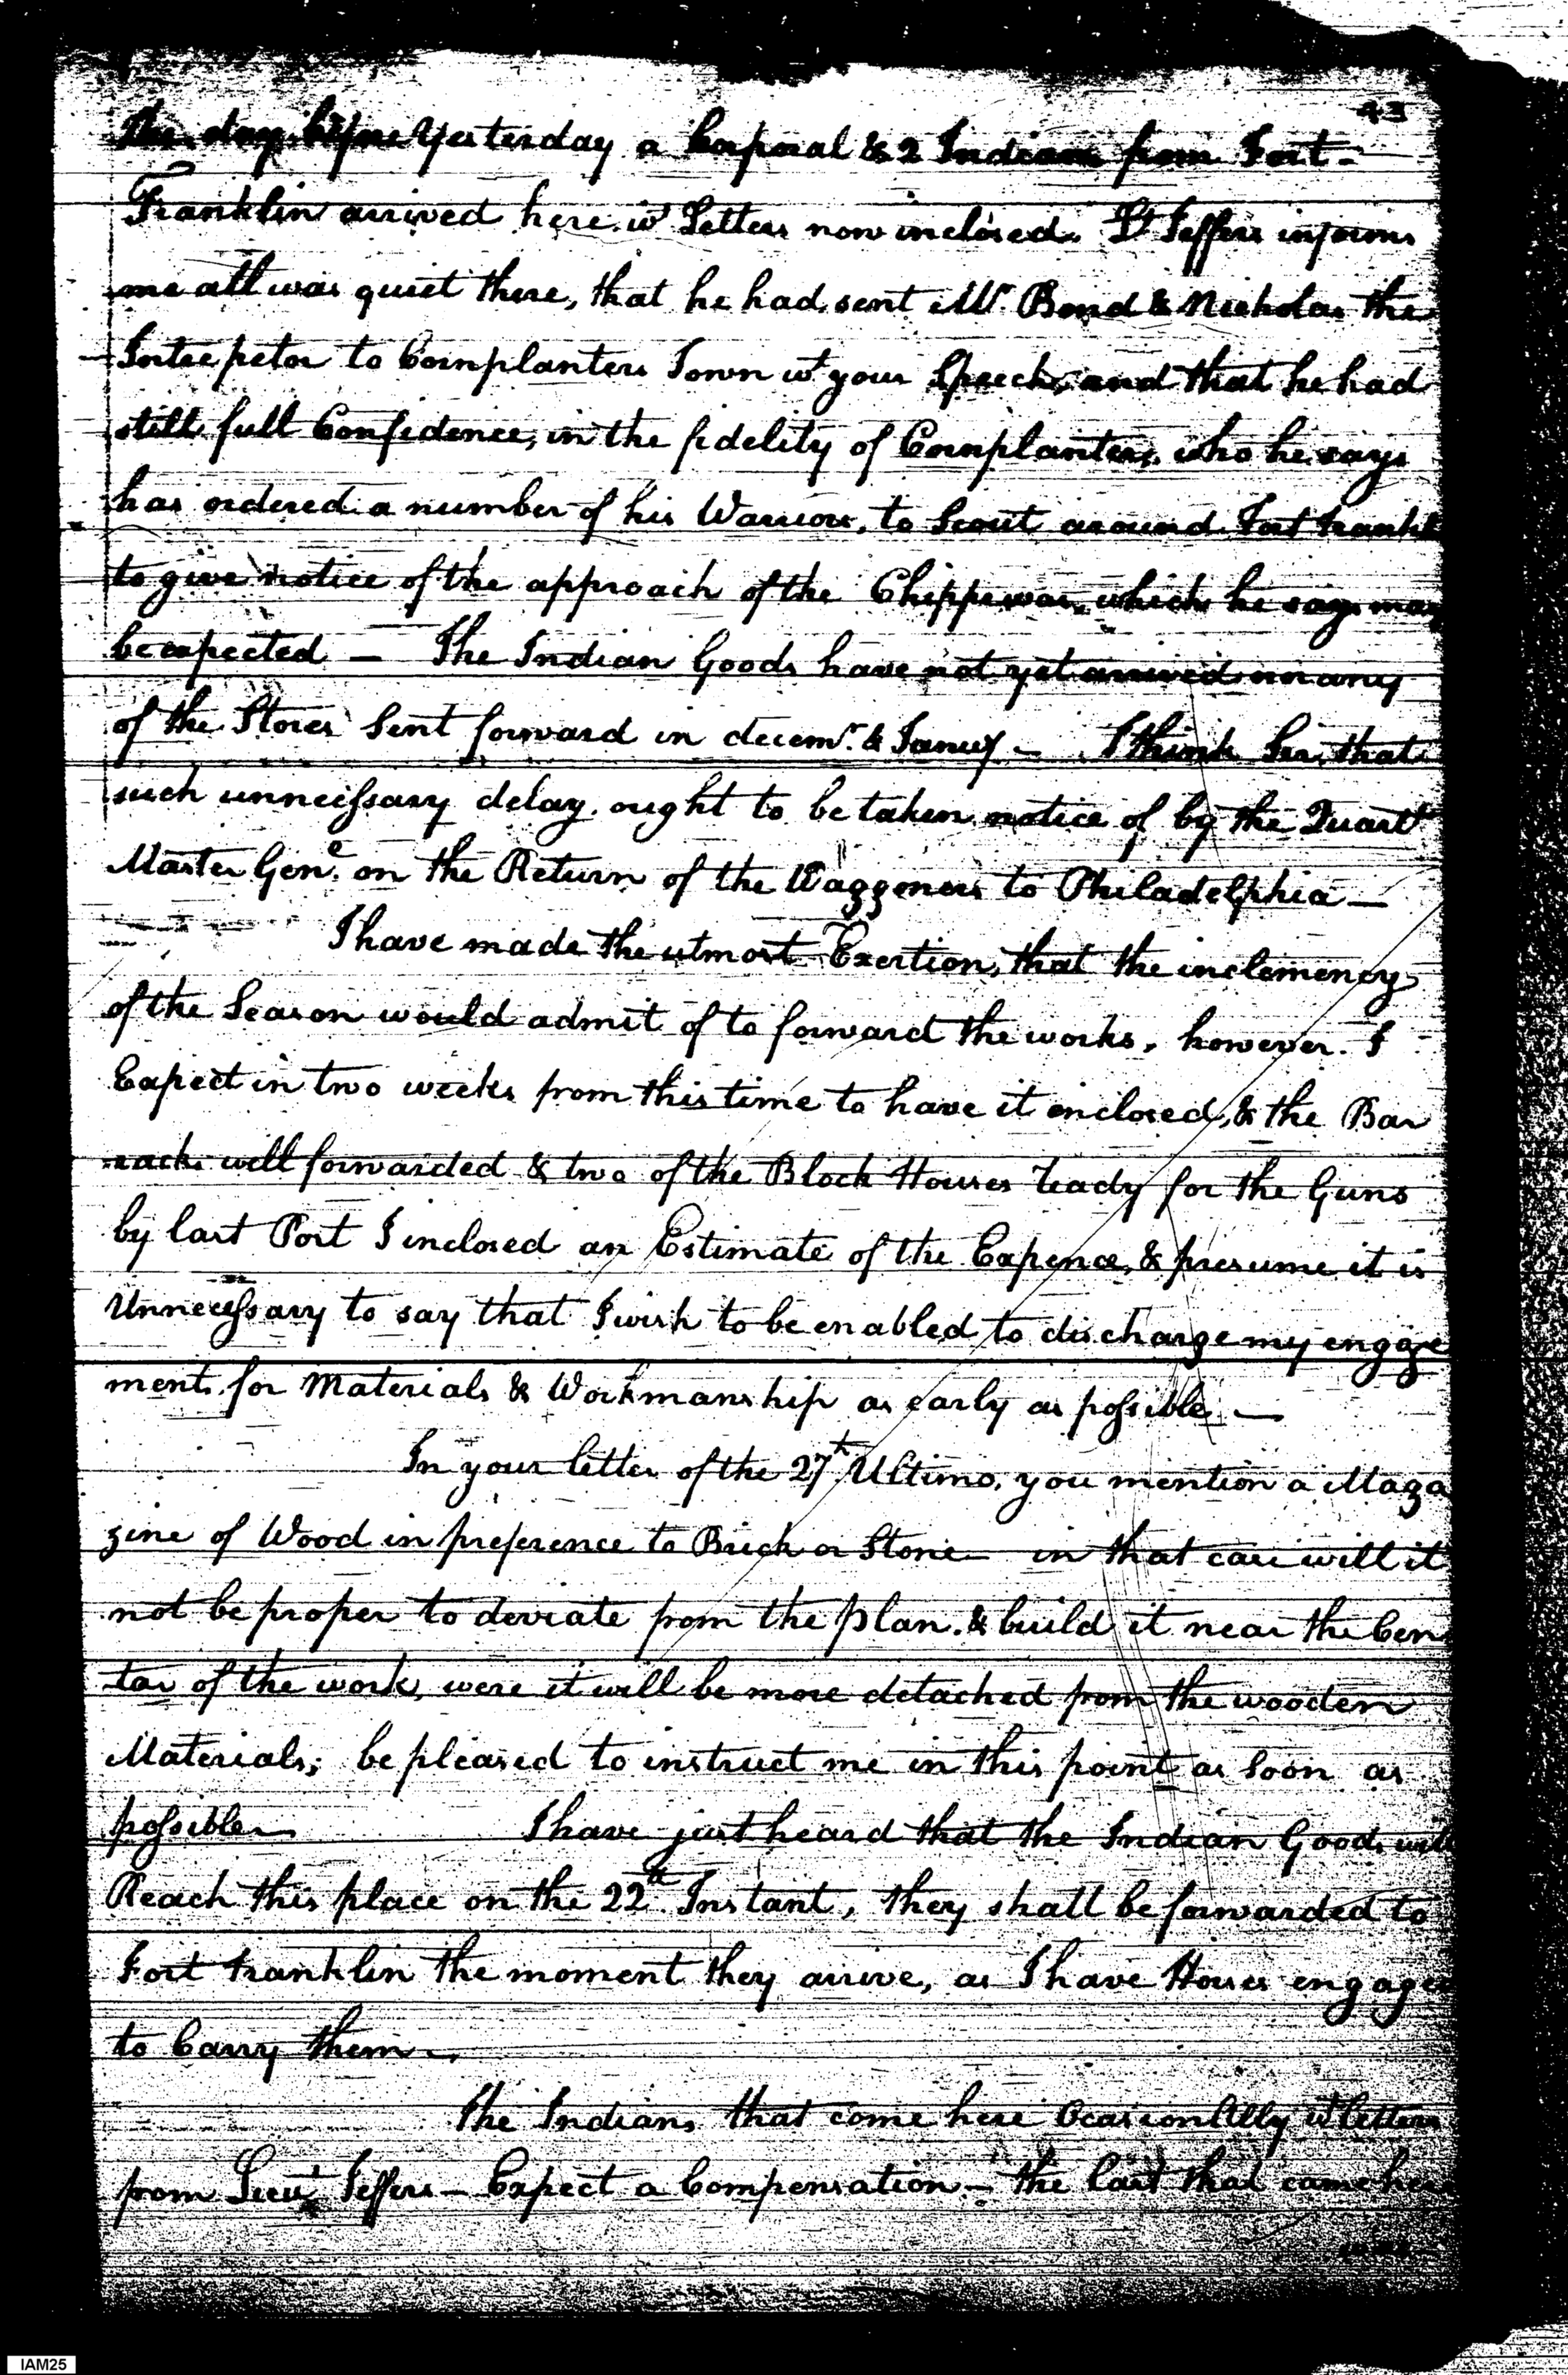 43
The day before Yesterday a Corporal & 2 Indians from Fort-
Franklin arrived here wt Letters now inclosed. Lt Jeffers informs
me all was quiet there, that he had sent Mr. Bond & Nicholas the
Interpetor to Cornplanters Town wt your Speech, and that he had
still full Confidence, in the fidelity of Cornplanter, who he says
has ordered a number of his Warriors, to Scout around Fort Frankl
to give notice of the approach of the Chippewas, which he says may
be expected — The Indian Goods have not yet arrived nor any
of the Stores Sent forward in decemr. & Januy — I think Sir, that
such unnecessary delay ought to be taken notice of by the Quartr
Master Genl. on the Return of the Waggoners to Philadelphia —
I have made the utmost Exertion, that the inclemency
of the Season would admit of to forward the works, however. I
Expect in two weeks from this time to have it enclosed, & the Bar
racks well forwarded & two of the Block Houses ready for the Guns
by last Post I inclosed an Estimate of the Expence, & presume it is
Unnecessary to say that I wish to be enabled to discharge my engage
ments for Materials & Workmanship as early as possible —
In your letter of the 27th Ultimo, you mention a Maga
zine of Wood in preference to Brick or Stone — in that case will it
not be proper to deviate from the plan. & build it near the Cen
tar of the work, were it will be more detached from the wooden
Materials; be pleased to instruct me in this point as soon as
possible — I have just heard that the Indian Goods will
Reach this place on the 22d Instant, they shall be forwarded to
Fort Franklin the moment they arrive, as I have Horses engaged
to Carry them —
The Indians that come here Ocasionlilly wt letters
from Lieut Jeffers — Expect a Compensation — the last that came here
IAM25